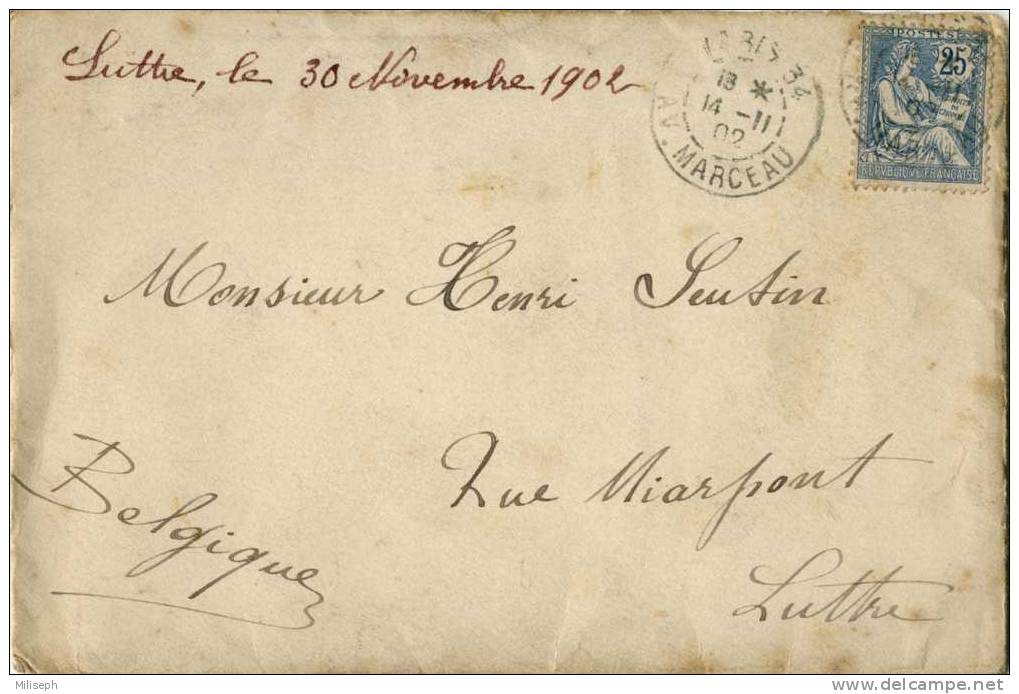 Luttre, le 30 Novembre 1902
PARIS 34
18 *
14 - 11
02
AV. MARCEAU
POSTES
25
REPVBLIQVE FRANÇAISE
Monsieur Henri Seutin
Rue Miarpont
Luttre
Belgique
© Miliseph
delcampe.net